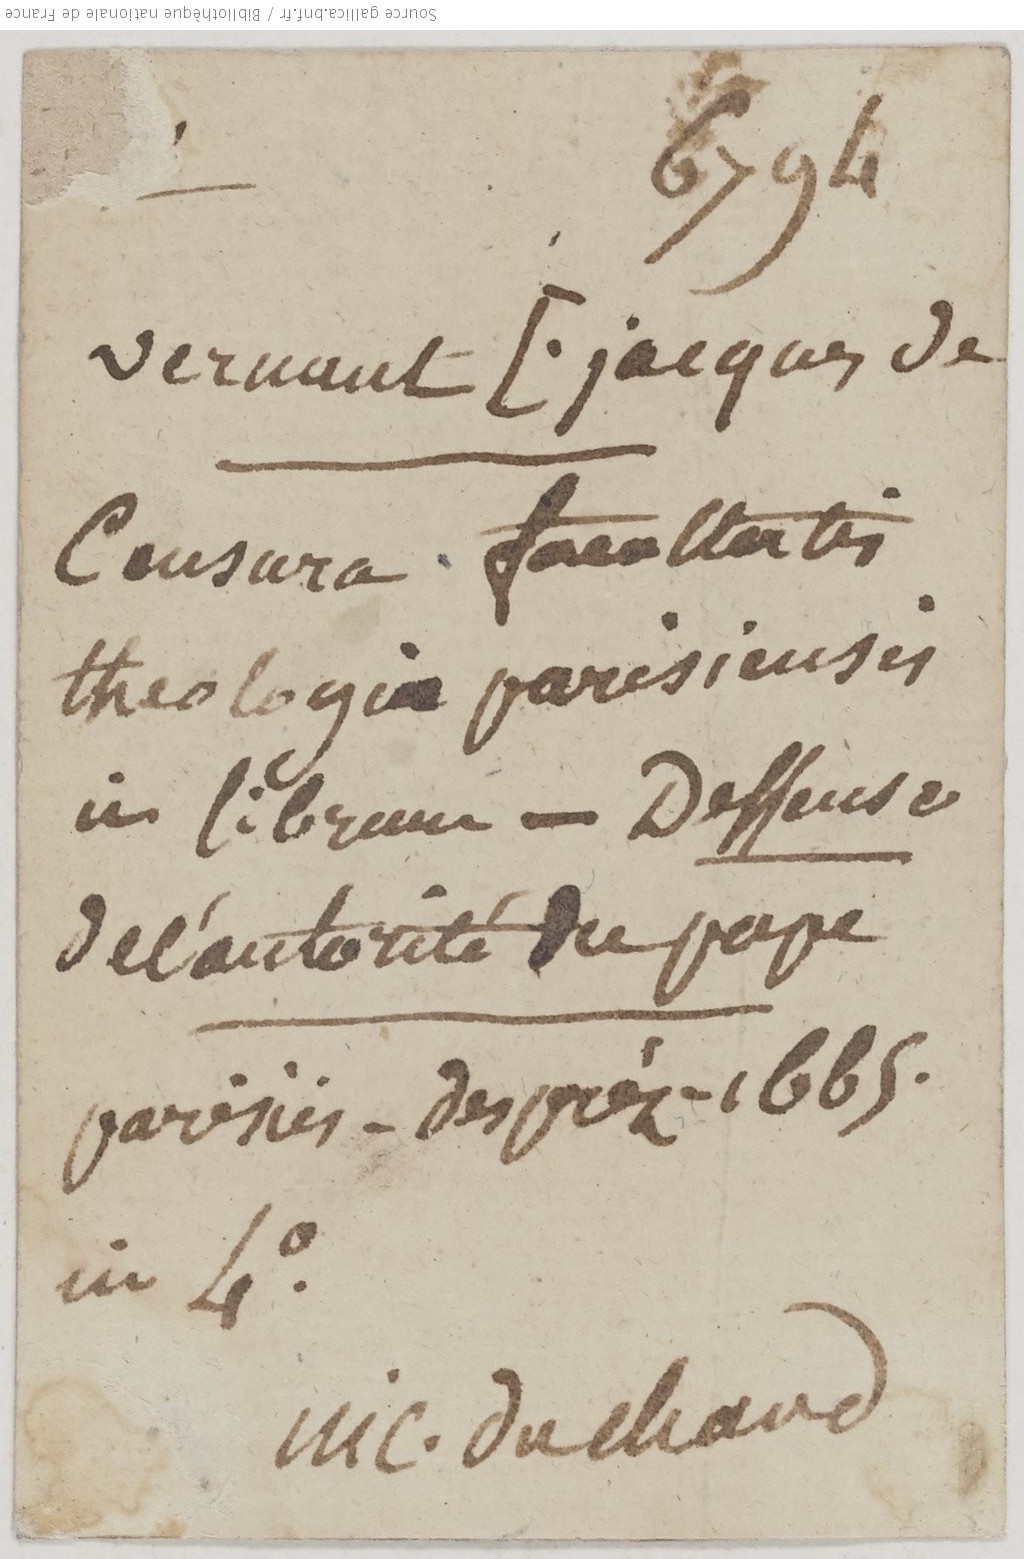 Source gallica.bnf.fr / Bibliothèque nationale de France
6794
vernant [. jacques de
Censura facultatis
theologia parisiensis
in librum — Deffense
de l'autorité du pape
parisiis - despréz - 1665.
in 4°.
nic. duchaud